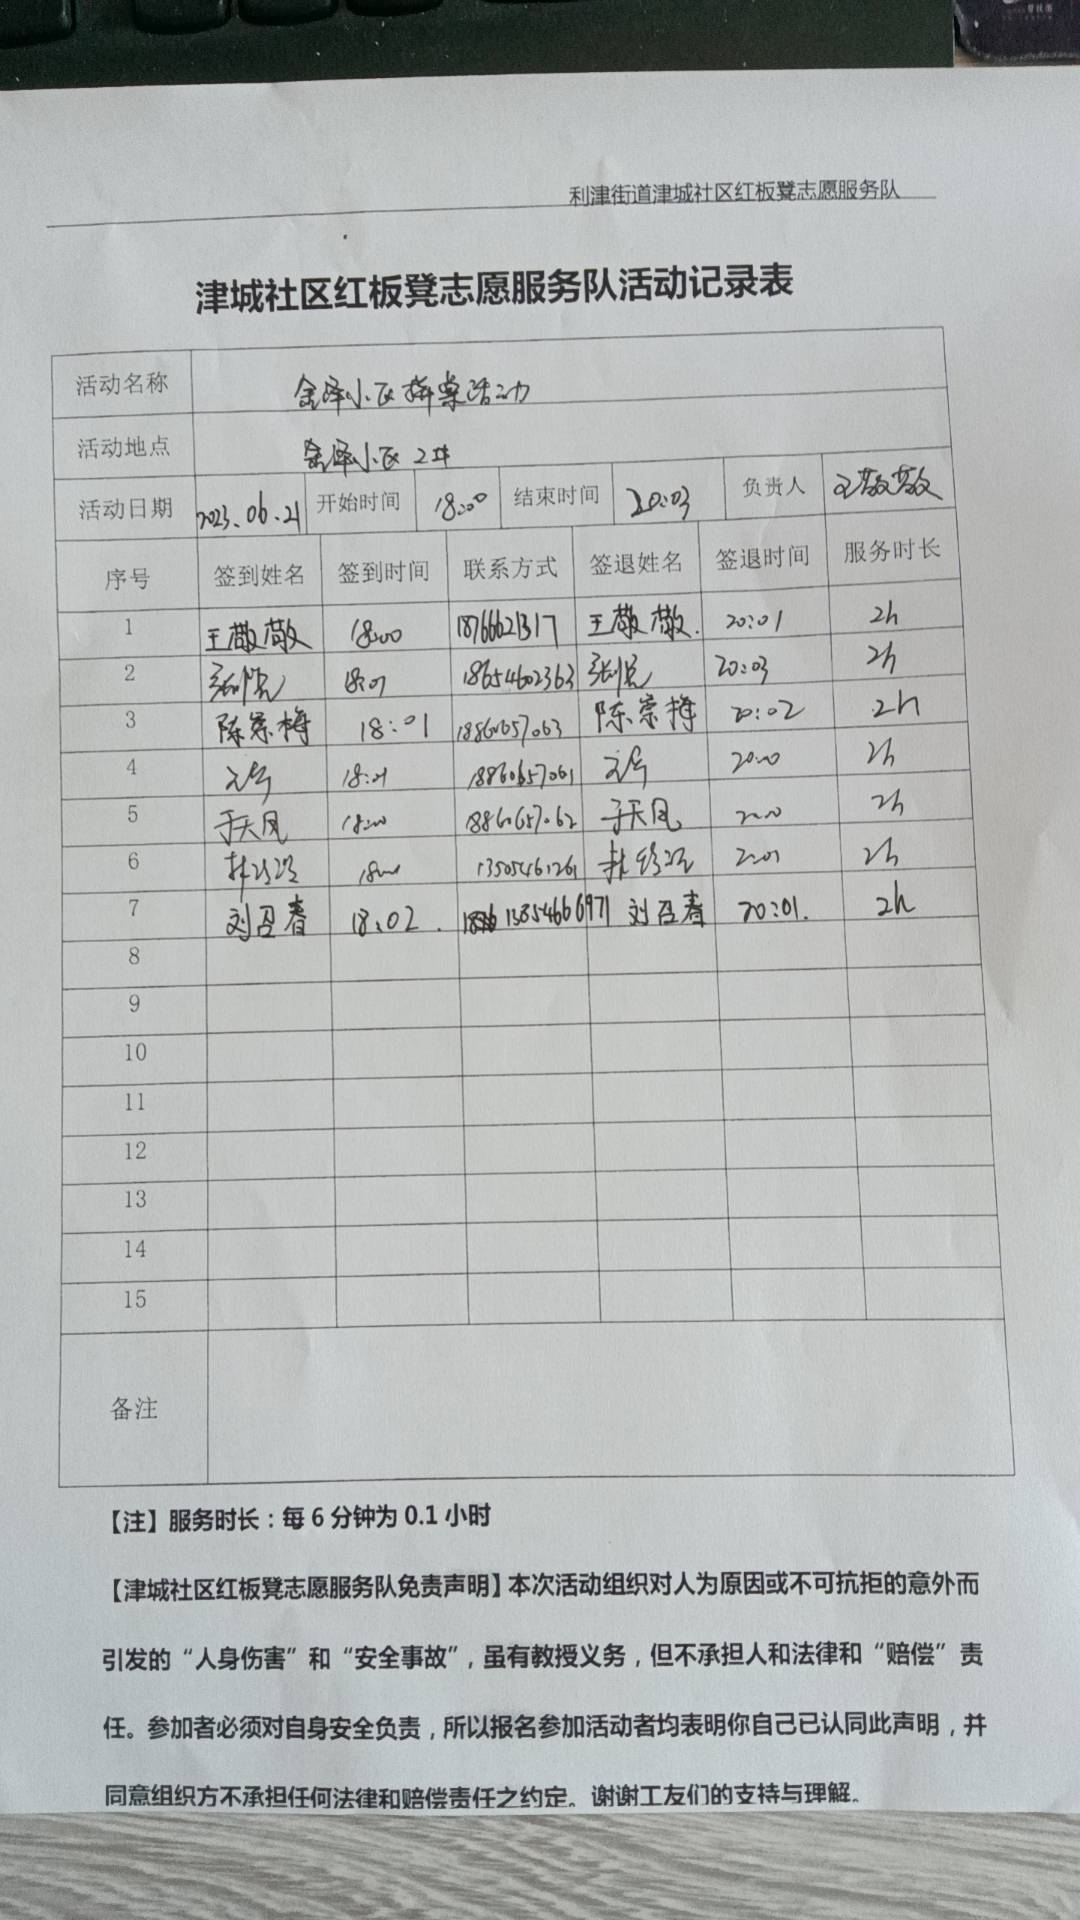 利津街道津城社区红板凳志愿服务队
津城社区红板凳志愿服务队活动记录表
活动名称 金泽小区拼桌活动
活动地点 金泽小区2#
活动日期 2023.06.21 开始时间 18:00 结束时间 20:03 负责人 王敬敬
序号 签到姓名 签到时间 联系方式 签退姓名 签退时间 服务时长
1 王敬敬 18:00 18766621317 王敬敬. 20:01 2h
2 张悦 18:01 18654602363 张悦 20:03 2h
3 陈宗梅 18:01 18860657063 陈宗梅 20:02 2h
4 18:01 18860657061 20:00 2h
5 于天凤 18:00 18860657062 于天凤 20:00 2h
6 18:00 13505461261 20:01 2h
7 刘召春 18:02. 13854666971 刘召春 20:01. 2h
8
9
10
11
12
13
14
15
备注
【注】服务时长：每6分钟为0.1小时
【津城社区红板凳志愿服务队免责声明】本次活动组织对人为原因或不可抗拒的意外而
引发的“人身伤害”和“安全事故”，虽有教授义务，但不承担人和法律和“赔偿”责
任。参加者必须对自身安全负责，所以报名参加活动者均表明你自己已认同此声明，并
同意组织方不承担任何法律和赔偿责任之约定。谢谢工友们的支持与理解。